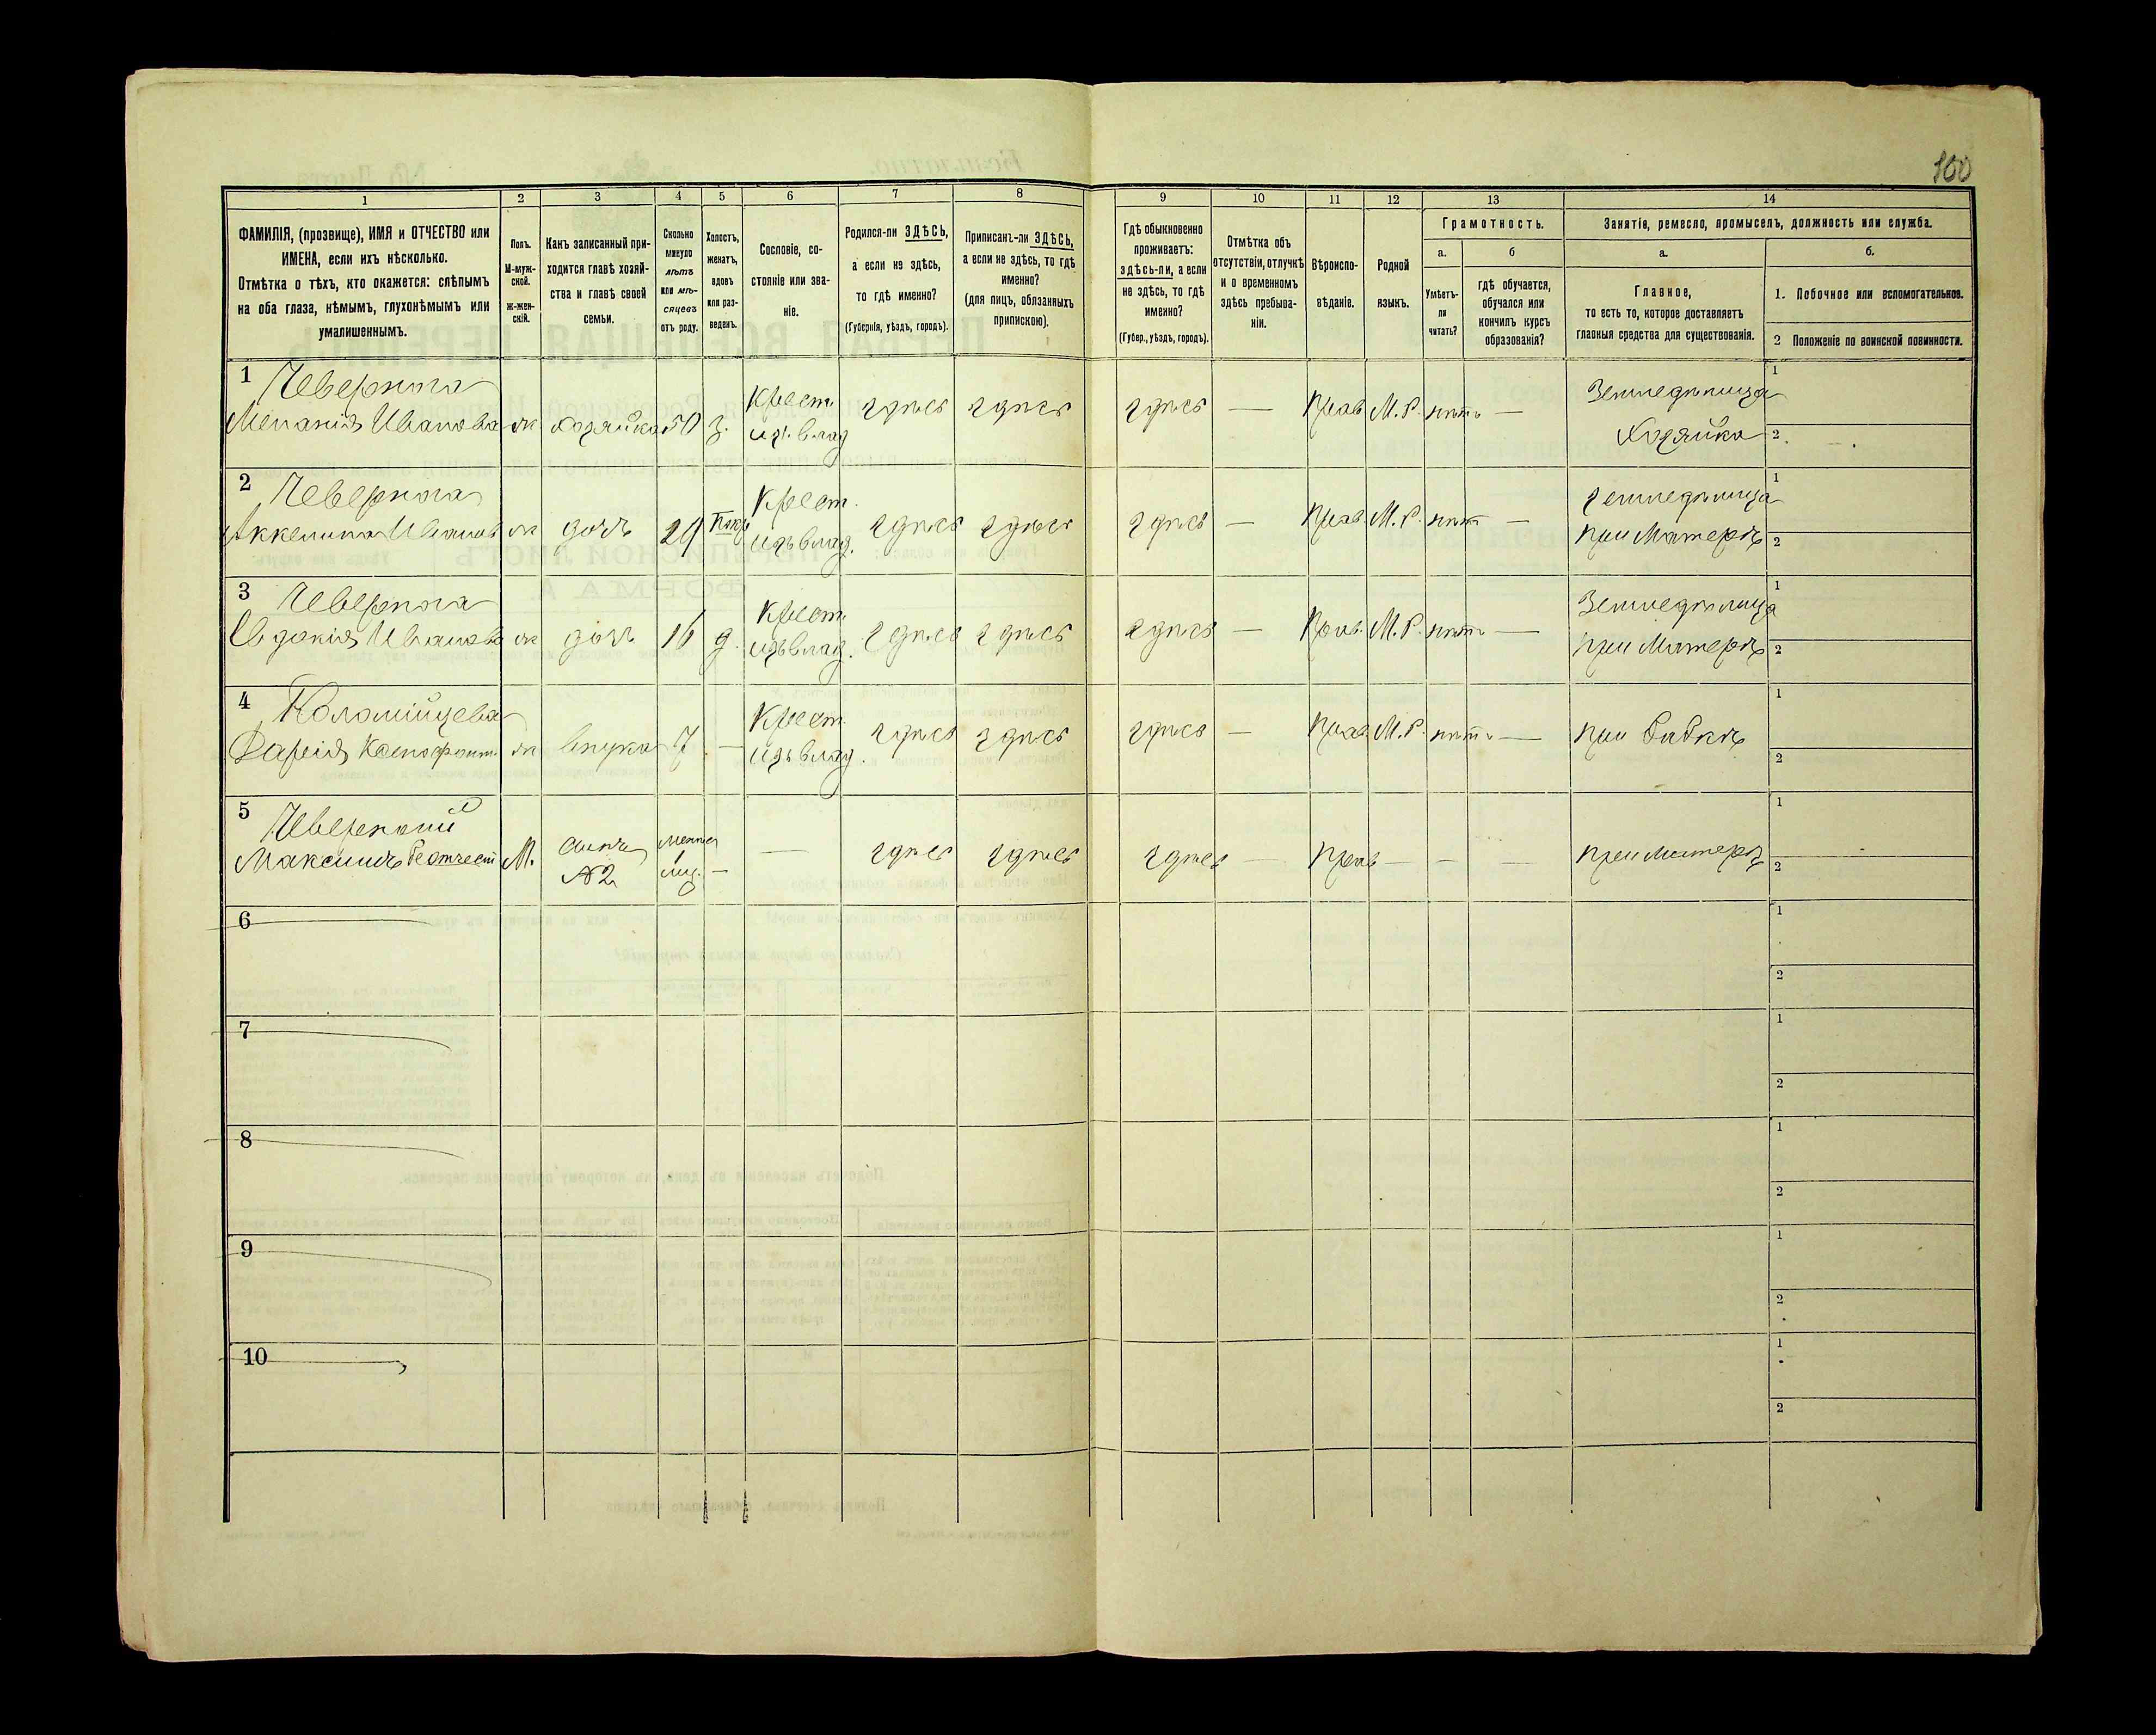 100
1
2
3
4
5
6
7
8
9
10
11
12
13
14
ФАМИЛІЯ, (прозвище), ИМЯ и ОТЧЕСТВО или
ИМЕНА, если ихъ нѣсколько.
Отмѣтка о тѣхъ, кто окажется: слѣпымъ
на оба глаза, нѣмымъ, глухонѣмымъ или
умалишеннымъ.
Полъ.
М-муж-
ской.
ж-жен-
скій.
Какъ записанный при-
ходится главѣ хозяй-
ства и главѣ своей
семьи.
Сколько
минуло
лѣтъ
или мѣ-
сяцевъ
отъ роду.
Холостъ,
женатъ,
вдовъ
или раз-
веденъ.
Сословіе, со-
стояніе или зва-
ніе.
Родился-ли ЗДѢСЬ,
а если не здѣсь,
то гдѣ именно?
(Губернія, уѣздъ, городъ).
Приписанъ-ли ЗДѢСЬ,
а если не здѣсь, то гдѣ
именно?
(для лицъ, обязанныхъ
припискою).
Гдѣ обыкновенно
проживаетъ:
здѣсь-ли, а если
не здѣсь, то гдѣ
именно?
(Губер., уѣздъ, городъ).
Отмѣтка объ
отсутствіи, отлучкѣ
и о временномъ
здѣсь пребыва-
ніи.
Вѣроиспо-
вѣданіе.
Родной
языкъ.
Грамотность.
а.
Умѣетъ-
ли
читать?
б
гдѣ обучается,
обучался или
кончилъ курсъ
образованія?
Занятіе, ремесло, промыселъ, должность или служба.
а.
Главное,
то есть то, которое доставляетъ
главныя средства для существованія.
б.
1. Побочное или вспомогательное.
2 Положеніе по воинской повинности.
1
Меланія Иванова ж хозяйка 50 з. Крест. изъ влад здѣсь здѣсь здѣсь — Прав. М.Р. нѣтъ — Земледѣлица
Хозяйка
1
2
2
Иванов ж дочь 29 Крест. изъ влад. здѣсь здѣсь здѣсь — Прав. М.Р. нѣт — Земледѣлица
при Матерѣ
1
2
3
Евдокія Иванова ж дочь 16 д. Крест. изъ влад. здѣсь здѣсь здѣсь — Прав. М.Р. нѣтъ — Земледѣлица
при Матерѣ
1
2
4 Коломійцева
Дарія Ксенофонт. ж внука 7 — Крест. изъ влад. здѣсь здѣсь здѣсь — Прав. М.Р. нѣтъ — при бабкѣ
1
2
5
Максимъ М. сынъ №2 — — здѣсь здѣсь здѣсь — Прав — — — при матерѣ
1
2
6
1
2
7
1
2
8
1
2
9
1
2
10
1
2